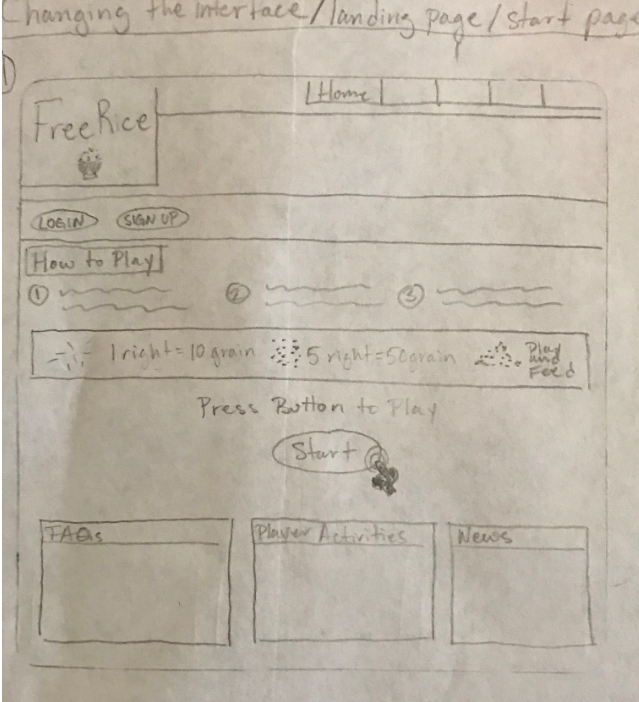 Changing the interface/landing page/start page
1
Home
FreeRice
LOGIN SIGN UP
How to Play
1 2 3
1 right = 10 grain 5 right = 50 grain Play and Feed
Press Button to Play
Start
FAQs Player Activities News